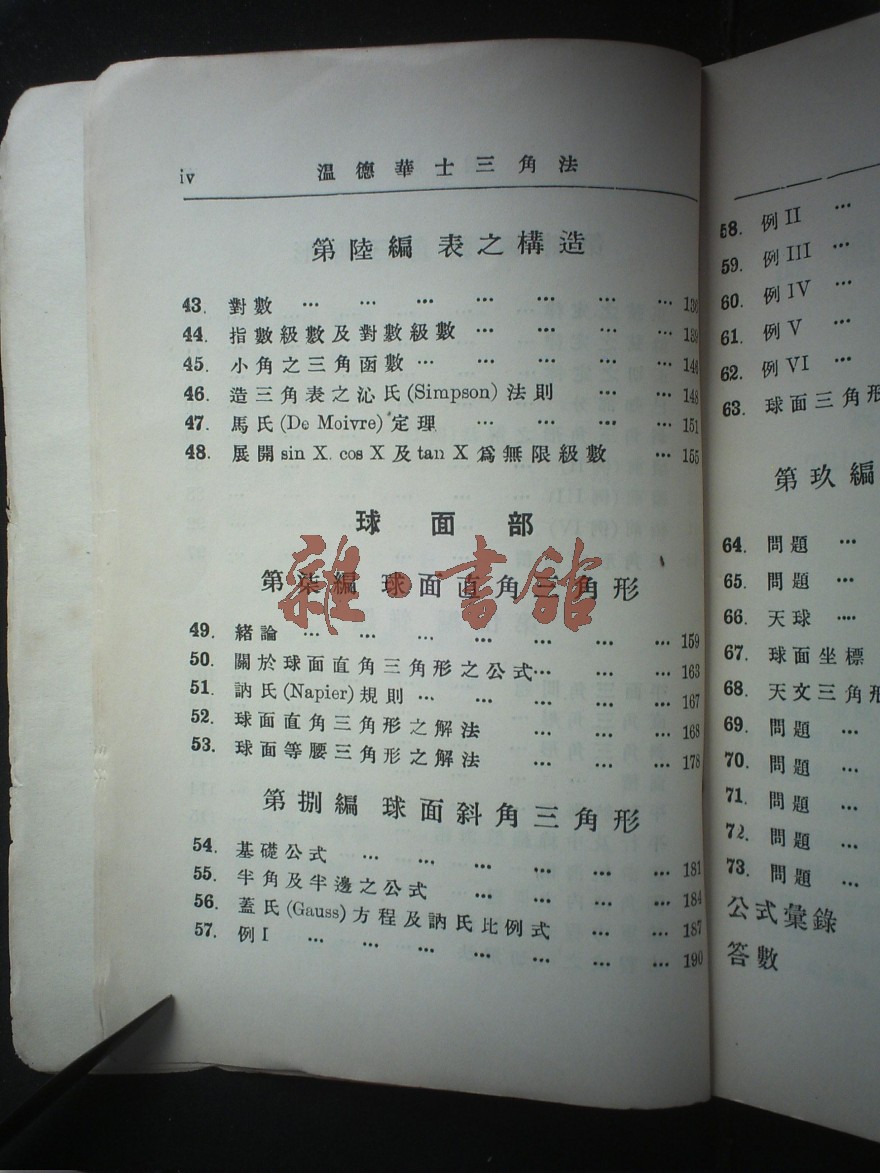 iv 溫德華士三角法
第陸編 表之構造
43. 對數 … … … … … … … 136
44. 指數級數及對數級數 … … … … 139
45. 小角之三角函數 … … … … … 146
46. 造三角表之沁氏(Simpson)法則 … … 148
47. 馬氏(De Moivre)定理 … … … … 151
48. 展開 sin X. cos X 及 tan X 爲無限級數 … … 155
球面部
第柒編 球面直角三角形
雜·書館
49. 緒論 … … … … … … … 159
50. 關於球面直角三角形之公式 … … … 163
51. 訥氏(Napier)規則 … … … … … 167
52. 球面直角三角形之解法 … … … 168
53. 球面等腰三角形之解法 … … … 178
第捌編 球面斜角三角形
54. 基礎公式 … … … … … … 181
55. 半角及半邊之公式 … … … … 184
56. 蓋氏(Gauss)方程及訥氏比例式 … … 187
57. 例I … … … … … … … 190
58. 例II …
59. 例III …
60. 例IV …
61. 例V …
62. 例VI …
63. 球面三角形
第玖編
64. 問題 …
65. 問題 …
66. 天球 …
67. 球面坐標
68. 天文三角形
69. 問題 …
70. 問題 …
71. 問題 …
72. 問題 …
73. 問題 …
公式彙錄
答數